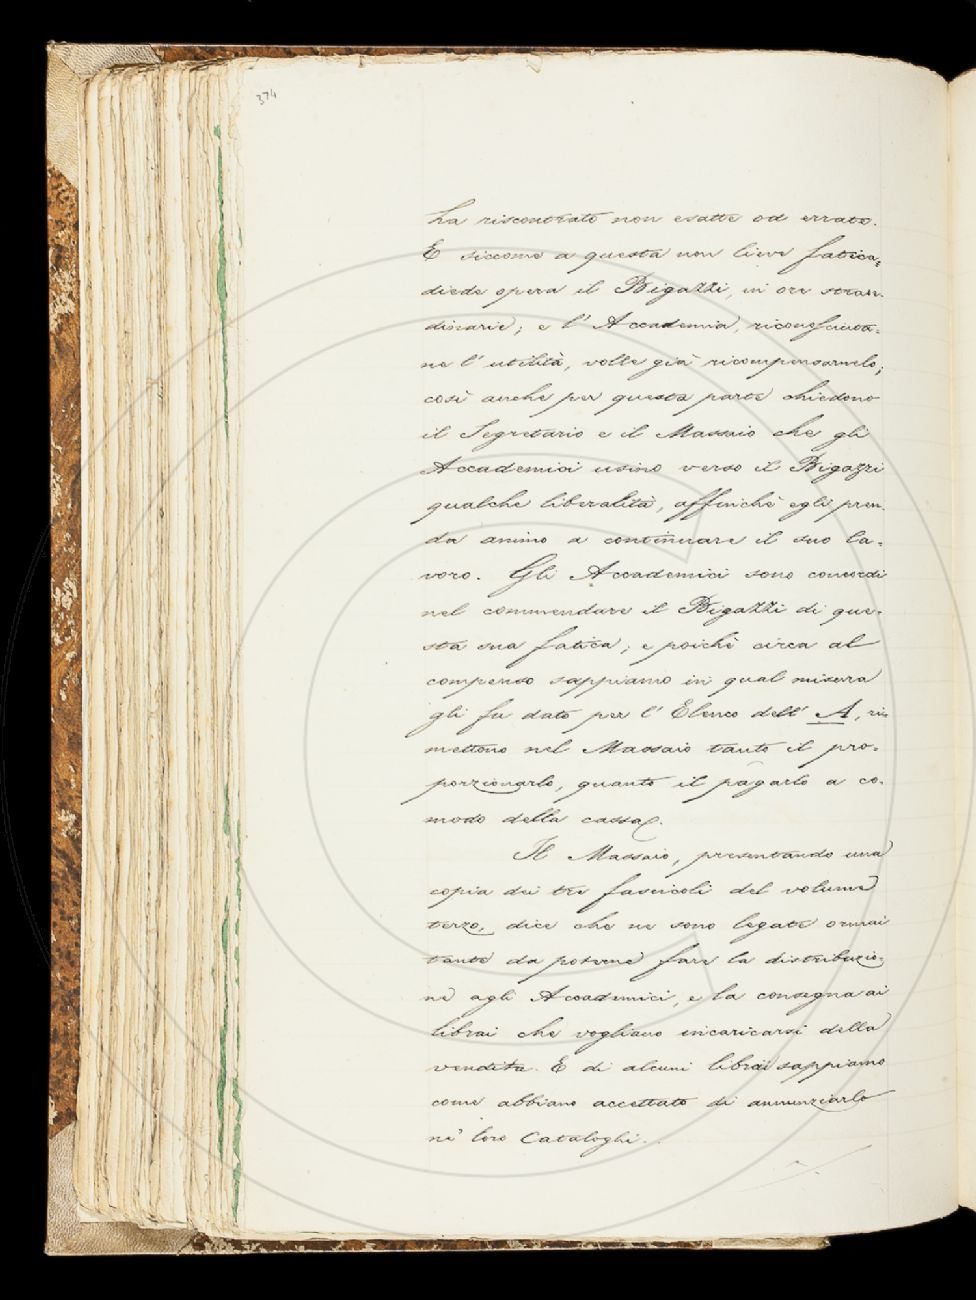 374
ha riscontrato non esatte od errate.
E siccome a questa non lieve fatica,
diede opera il Bigazzi, in ore straor-
dinarie; e l'Accademia, riconosciuta-
ne l'utilità, volle già ricompensarnelo;
così anche per questa parte chiedono
il Segretario e il Massaio che gli
Accademici usino verso il Bigazzi
qualche liberalità, affinchè egli pren-
da animo a continuare il suo la-
voro. Gli Accademici sono concordi
nel commendare il Bigazzi di que-
sta sua fatica; e poichè circa al
compenso sappiamo in qual misura
gli fu dato per l'Elenco dell'A, ri-
mettono nel Massaio tanto il pro-
porzionarlo, quanto il pagarlo a co-
modo della cassa.
Il Massaio, presentando una
copia dei tre fascicoli del volume
terzo, dice che ne sono legate ormai
tante da poterne fare la distribuzio-
ne agli Accademici, e la consegna ai
librai che vogliano incaricarsi della
vendita. E di alcuni librai sappiamo
come abbiano accettato di annunziarlo
ne' loro Cataloghi.